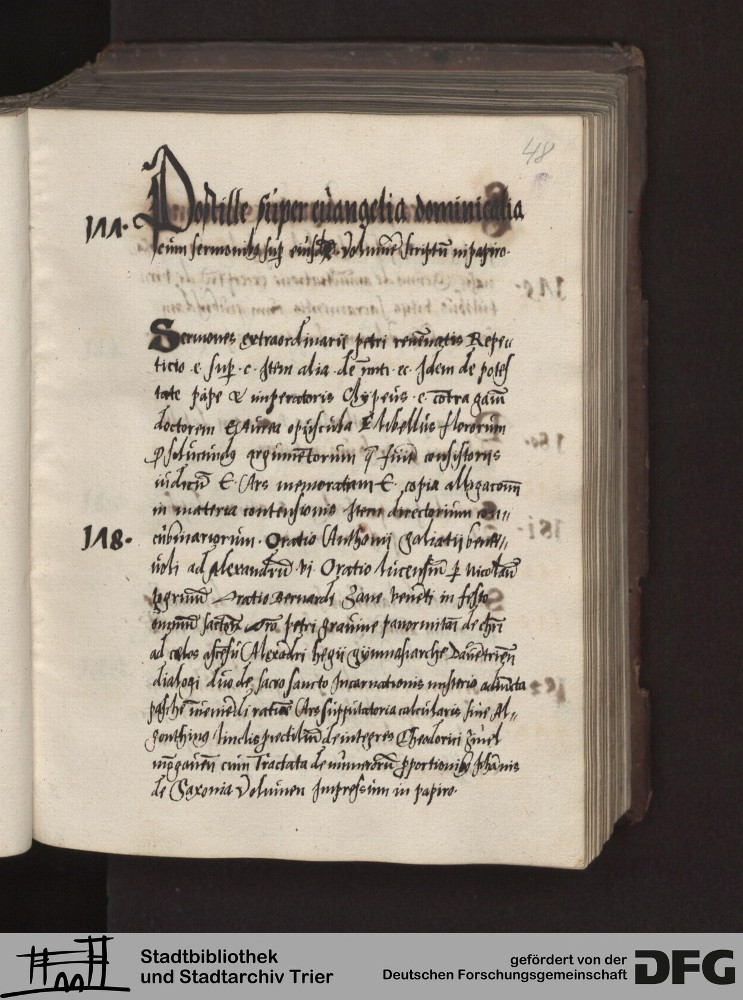 48
Postille super euangelia dominicalia
177.
cum sermonibꝫ suꝑ eiusdē. Volumē scriptū in papiro.
Sermones extraordinarii petri rauēnatis Repe//
ticio .c. suꝑ .c. Item alia de Idem de potes
tate pape & imperatoris Clypeus .c. cōtra gaiū
doctorem Aurea opuscula libellus flororum
ꝓ soluendis argumētorum cōsistoriis
iudicū Ars memoratiua copia alligacionū
in materia contensionis Item directorium con//
178.
cubinariorum. Oratio Anthonij galiatij benti//
uoli ad Alexandrū .vi. Oratio lucensiū ꝑ Nicolaū
tygrinū Oratio Bernardi Zane veneti in festo
omniū sāctorū Oro petri grauine panormitāi de chri
ad celos ascēsu Alexādri hegii gymnasiarche Dauētriēn
dialogi duo de sacro sancto Incarnationis misterio adiūcta
pasche inueniēdi ratiōe Ars supputatoria calcularis siue Al//
gorithmus de integris Theodorici
cum Tractatu de numerorū ꝓportionibꝫ Johānis
de Saxonia Volumen Impressum in papiro.
Stadtbibliothek
und Stadtarchiv Trier
gefördert von der
Deutschen Forschungsgemeinschaft
DFG